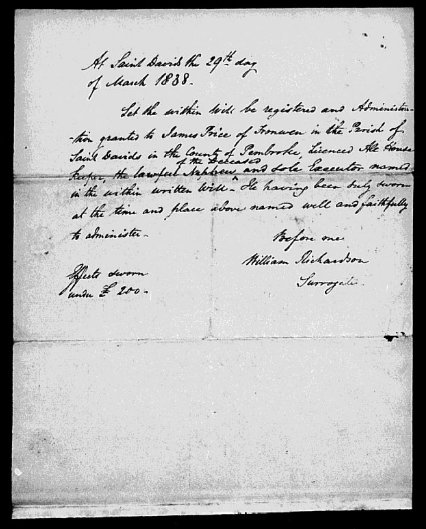 At Saint Davids the 29th day
of March 1838.
Let the within Will be registered and Administra-
tion granted to James Price of Tronwen in the Parish of
Saint Davids in the County of Pembroke, Licenced Ale House
Keeper, the lawful Nephew ^ of the Deceased and sole Executor named
in the within written Will - He having been duly sworn
at the time and place above named well and faithfully
to administer.
Before me
William Richardson
Surrogate.
Effects sworn
under £ 200.